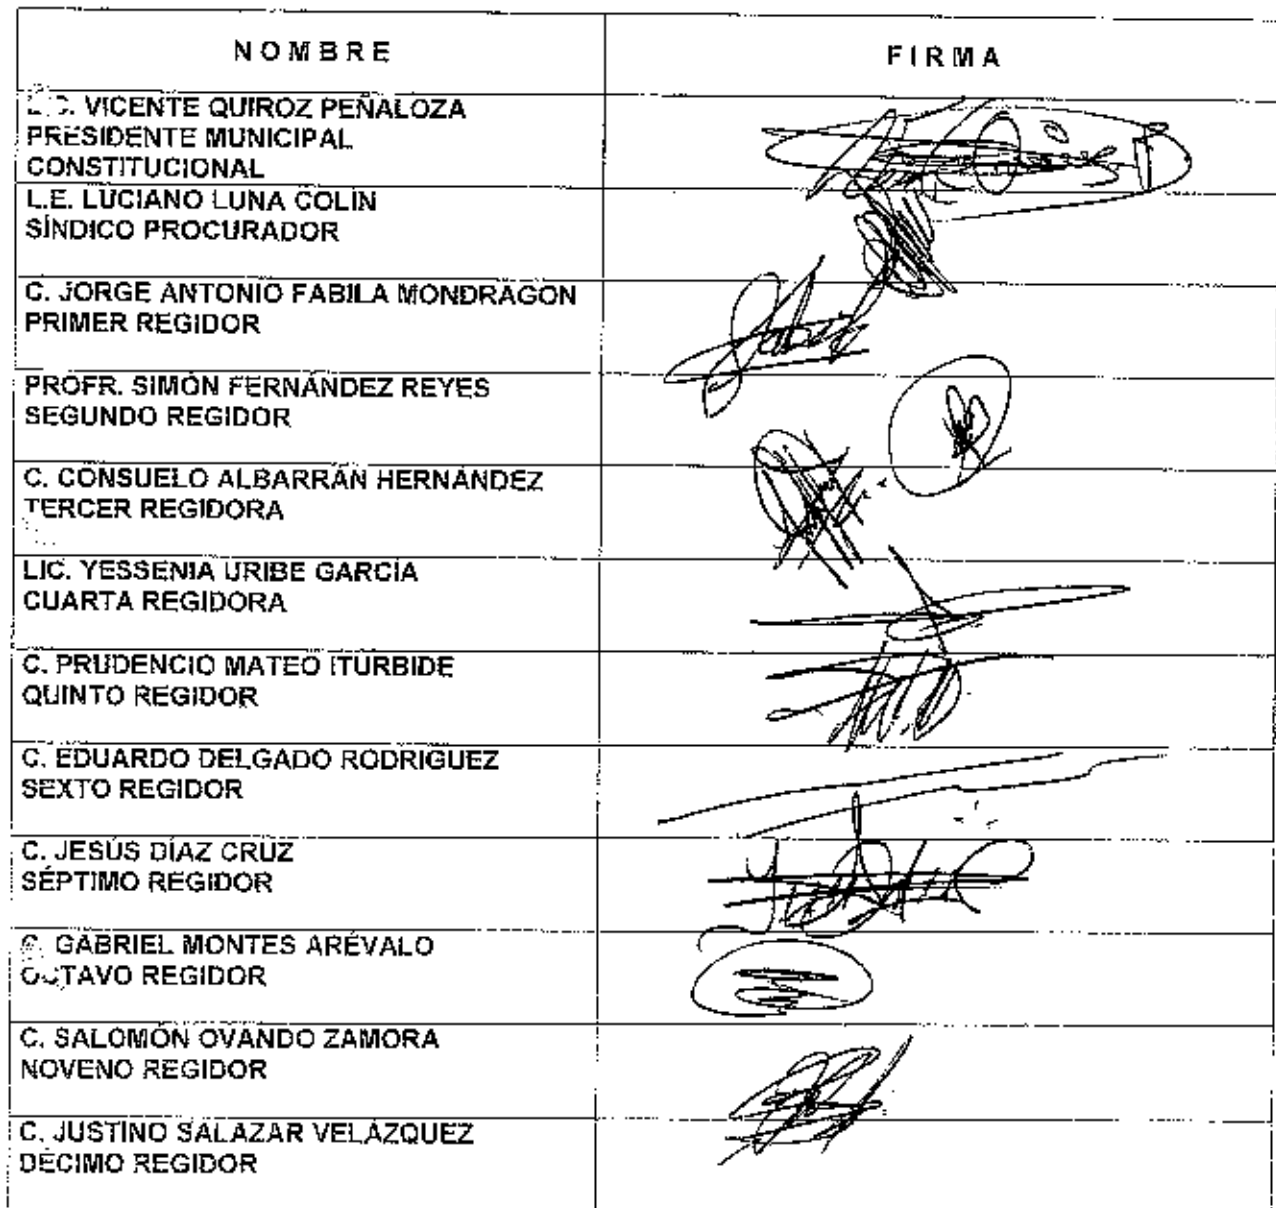 NOMBRE FIRMA
LIC. VICENTE QUIROZ PEÑALOZA
PRESIDENTE MUNICIPAL
CONSTITUCIONAL
L.E. LUCIANO LUNA COLÍN
SÍNDICO PROCURADOR
C. JORGE ANTONIO FABILA MONDRAGON
PRIMER REGIDOR
PROFR. SIMÓN FERNÁNDEZ REYES
SEGUNDO REGIDOR
C. CONSUELO ALBARRÁN HERNÁNDEZ
TERCER REGIDORA
LIC. YESSENIA URIBE GARCÍA
CUARTA REGIDORA
C. PRUDENCIO MATEO ITURBIDE
QUINTO REGIDOR
C. EDUARDO DELGADO RODRIGUEZ
SEXTO REGIDOR
C. JESÚS DÍAZ CRUZ
SÉPTIMO REGIDOR
C. GABRIEL MONTES ARÉVALO
OCTAVO REGIDOR
C. SALOMÓN OVANDO ZAMORA
NOVENO REGIDOR
C. JUSTINO SALAZAR VELÁZQUEZ
DÉCIMO REGIDOR